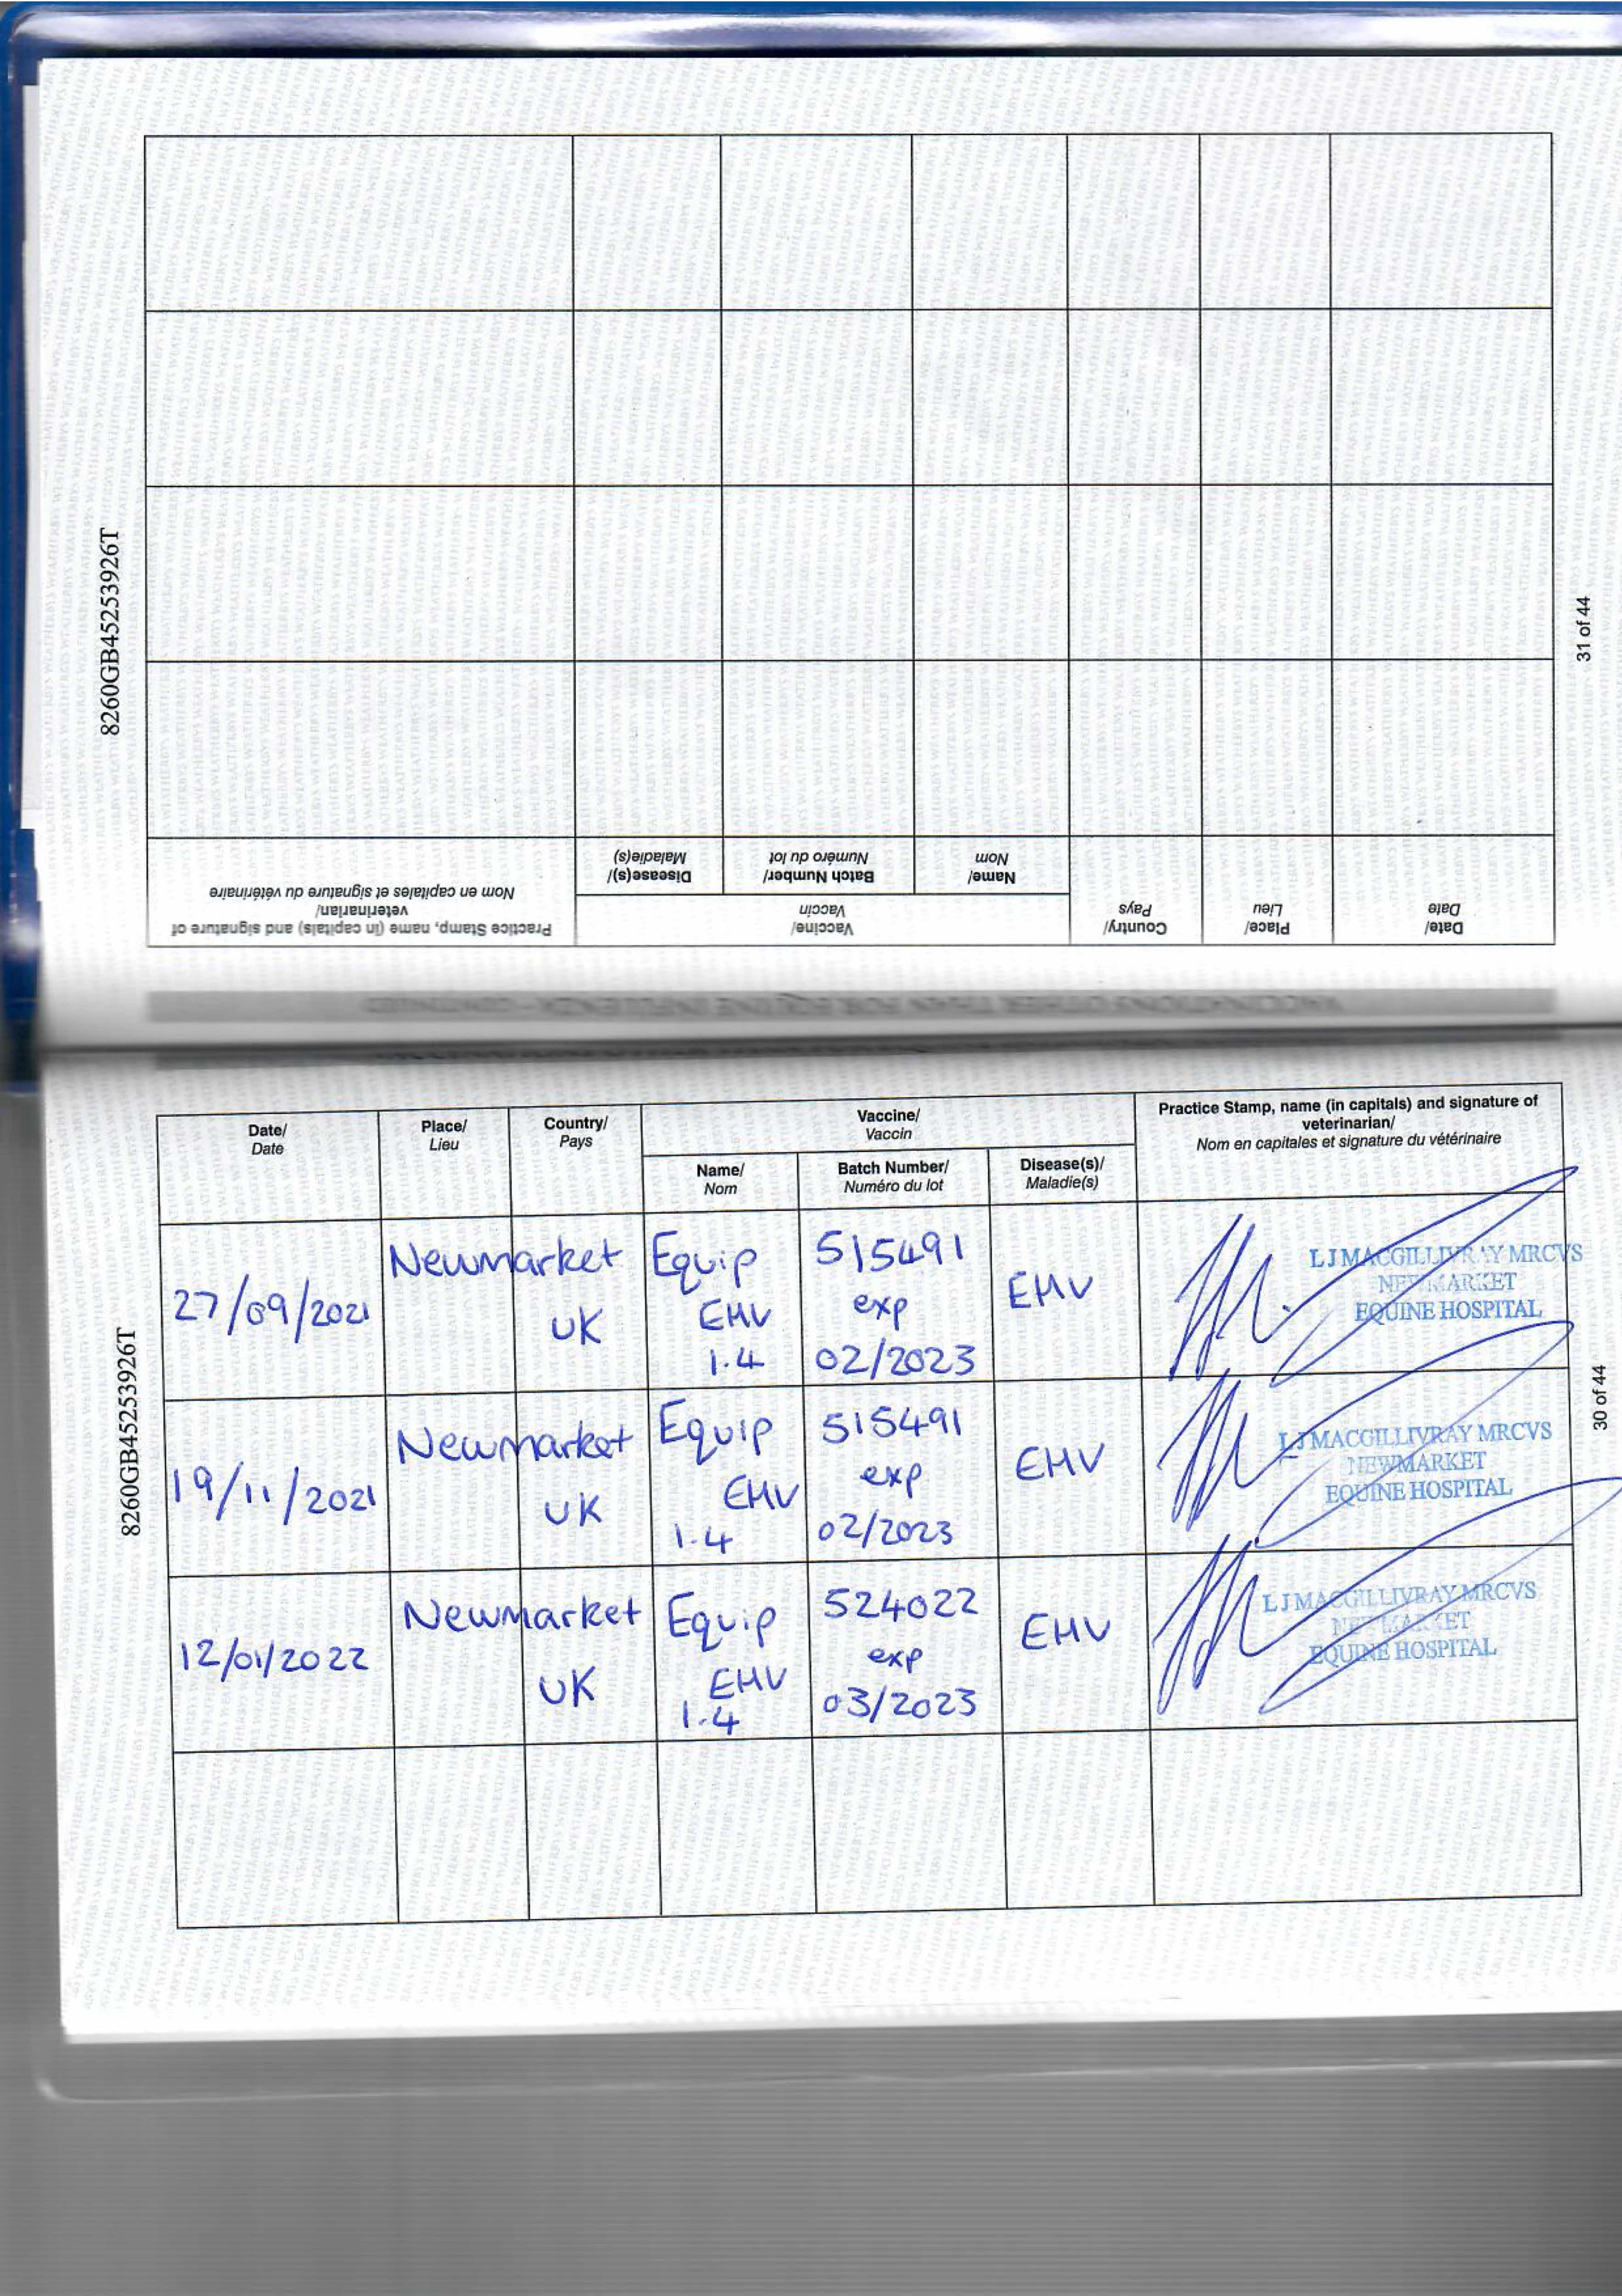 8260GB45253926T
31 of 44
VACCINATIONS OTHER THAN FOR EQUINE INFLUENZA - CONTINUED
Date/
Date
Place/
Lieu
Country/
Pays
Vaccine/
Vaccin
Name/
Nom
Batch Number/
Numéro du lot
Disease(s)/
Maladie(s)
Practice Stamp, name (in capitals) and signature of
veterinarian/
Nom en capitales et signature du vétérinaire
8260GB45253926T
30 of 44
Date/
Date
Place/
Lieu
Country/
Pays
Vaccine/
Vaccin
Name/
Nom
Batch Number/
Numéro du lot
Disease(s)/
Maladie(s)
Practice Stamp, name (in capitals) and signature of
veterinarian/
Nom en capitales et signature du vétérinaire
27/09/2021
Newmarket
UK
Equip
EHV
1.4
515491
exp
02/2023
EHV
L J MACGILLIVRAY MRCVS
NEWMARKET
EQUINE HOSPITAL
19/11/2021
Newmarket
UK
Equip
EHV
1.4
515491
exp
02/2023
EHV
L J MACGILLIVRAY MRCVS
NEWMARKET
EQUINE HOSPITAL
12/01/2022
Newmarket
UK
Equip
EHV
1.4
524022
exp
03/2023
EHV
L J MACGILLIVRAY MRCVS
NEWMARKET
EQUINE HOSPITAL